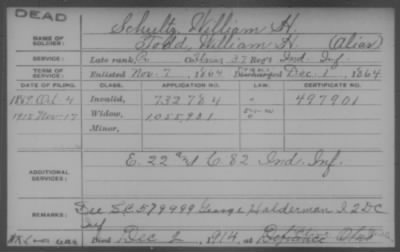 DEAD
NAME OF SOLDIER: Schultz, William H.
Todd, William H. (Alias)
SERVICE: Late rank, Co. 37 Reg't Ind. Inf.
TERM OF SERVICE: Enlisted Nov. 7, 1864 Discharged Dec. 1, 1864
DATE OF FILING. CLASS. APPLICATION NO. LAW. CERTIFICATE NO.
Oct 4 Invalid, 497901
Nov-17 Widow, 1055921
Minor,
ADDITIONAL SERVICES: E. 22 & C. 82 Ind. Inf.
REMARKS: See SC 579499 George Halderman I 2 DC
Inf
Died Dec 2, 1914, at Defiance Ohio